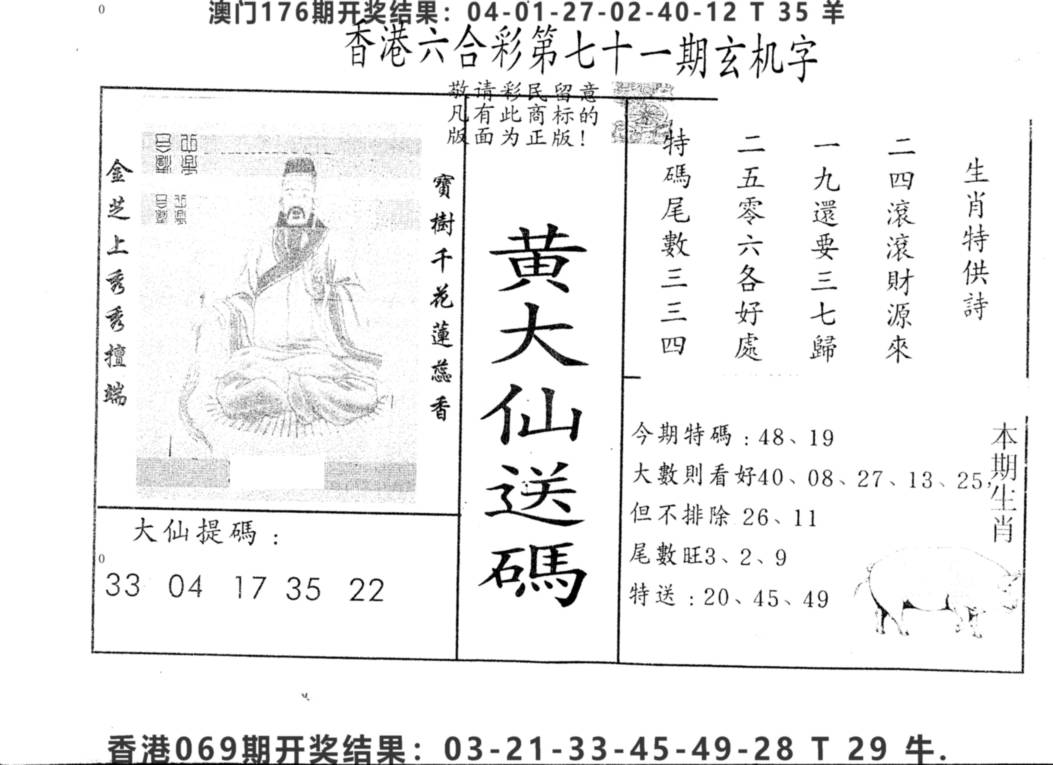 澳门176期开奖结果：04-01-27-02-40-12 T 35 羊
香港六合彩第七十一期玄机字
敬请彩民留意
凡有此商标的
版面为正版！
金芝上秀秀擅端
寶樹千花蓮蕊香
大仙提碼：
33 04 17 35 22
黄大仙送碼
生肖特供詩
二四滾滾財源來
一九還要三七歸
二五零六各好處
特碼尾數三三四
今期特碼：48、19
大數則看好40、08、27、13、25,
但不排除 26、11
尾數旺3、2、9
特送：20、45、49
本期生肖
香港069期开奖结果：03-21-33-45-49-28 T 29 牛.